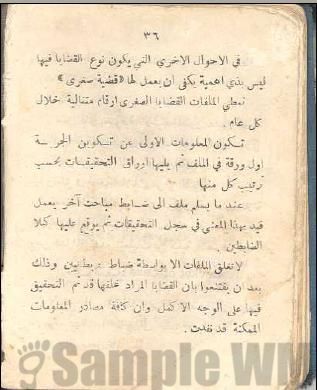 ٣٦
في الاحوال الاخرى التي يكون نوع القضايا فيها
ليس بذي اهمية يكفى ان يعمل لها «قضية صغرى»
تعطي الملفات القضايا الصغرى ارقام متتالية خلال
كل عام.
تكون المعلومات الاولى عن تكوين الجريمة
اول ورقة في الملف ثم يليها اوراق التحقيقات بحسب
ترتيب كل منها
عند ما يسلم ملف الى ضابط مباحث آخر يعمل
قيد بهذا المعنى في سجل التحقيقات ثم يوقع عليها كلا
الضابطين.
لا تغلق الملفات الا بواسطة ضباط بريطانيين وذلك
بعد ان يقتنعوا بان القضايا المراد غلقها قد تم التحقيق
فيها على الوجه الاكمل وان كافة مصادر المعلومات
الممكنة قد نفدت.
Sample WM